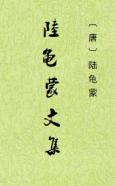 〔唐〕陆龟蒙
陸龟蒙文集